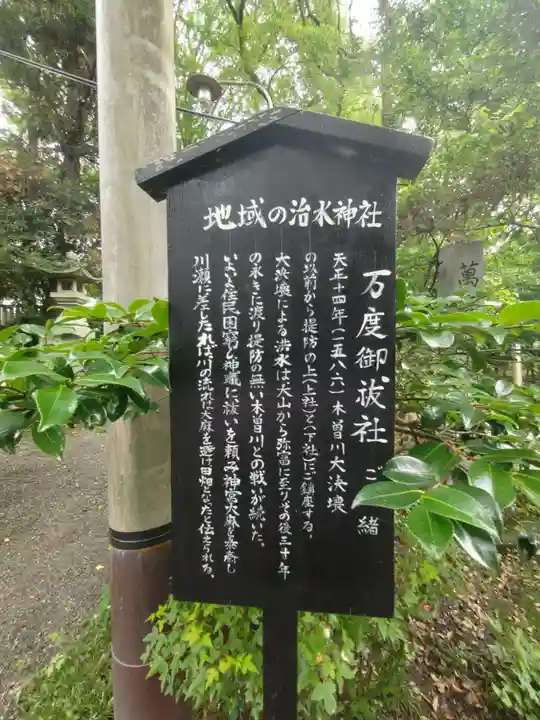 地域の治水神社
万度御祓社
ご 緒
天正十四年(一五八六)木曽川大決壊
の以前から堤防の上(上社)と(下社)にご鎮座する。
大決壊による洪水は犬山から弥富に至りその後三十年
の永きに渡り堤防の無い木曽川との戦いが続いた。
いよいよ住民困窮し神職に祓いを頼み神宮大麻を奉斎し
川瀬に差したれば川の流れは大麻を避け田畑となったと伝えられる。
萬